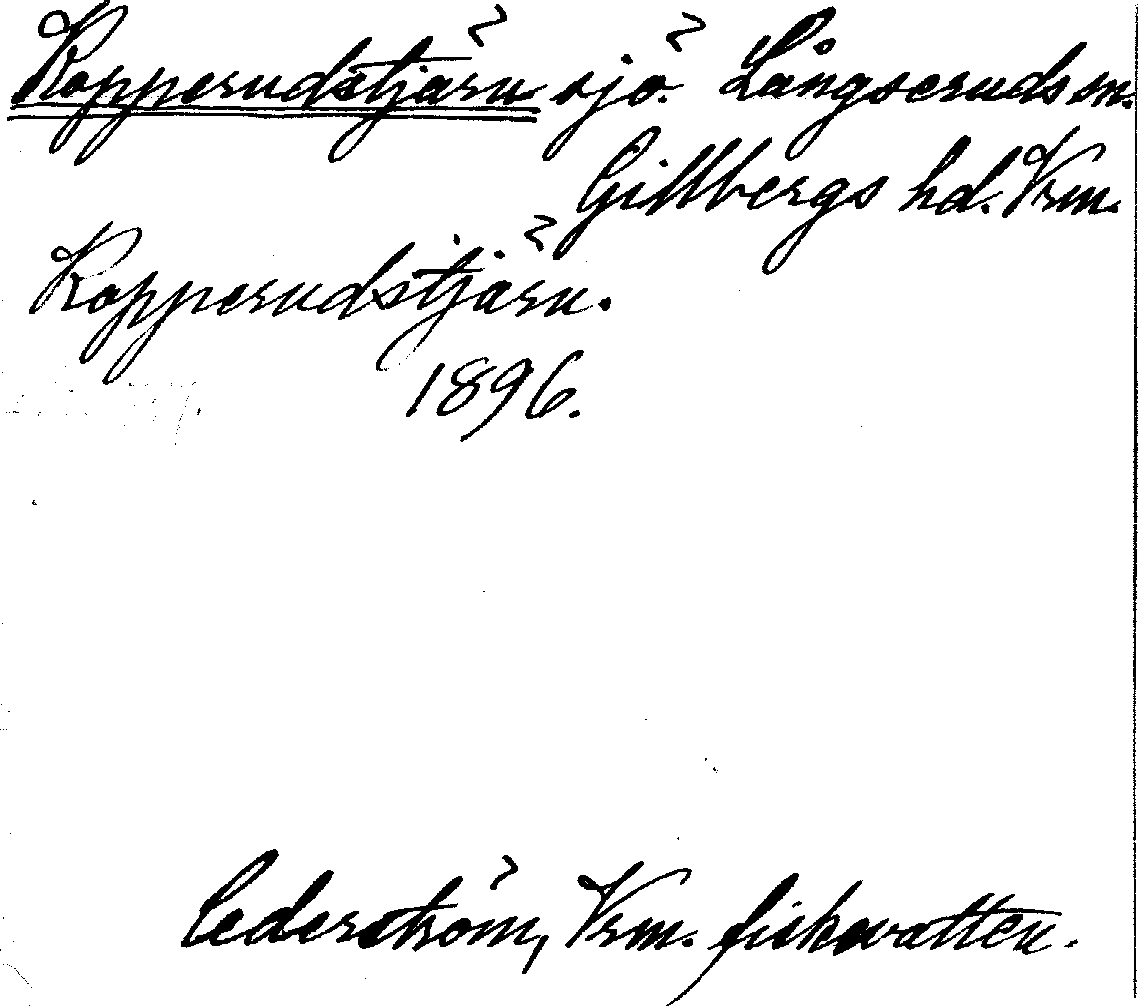 Kopperudstjärn sjö. Långseruds sn.
Gillbergs hd. Vrm.
Kopperudstjärn.
1896.
Cederström, Vrm. fiskevatten.